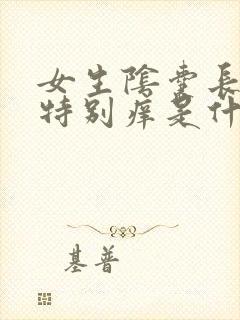 女生陰長
特别痒是什
基普